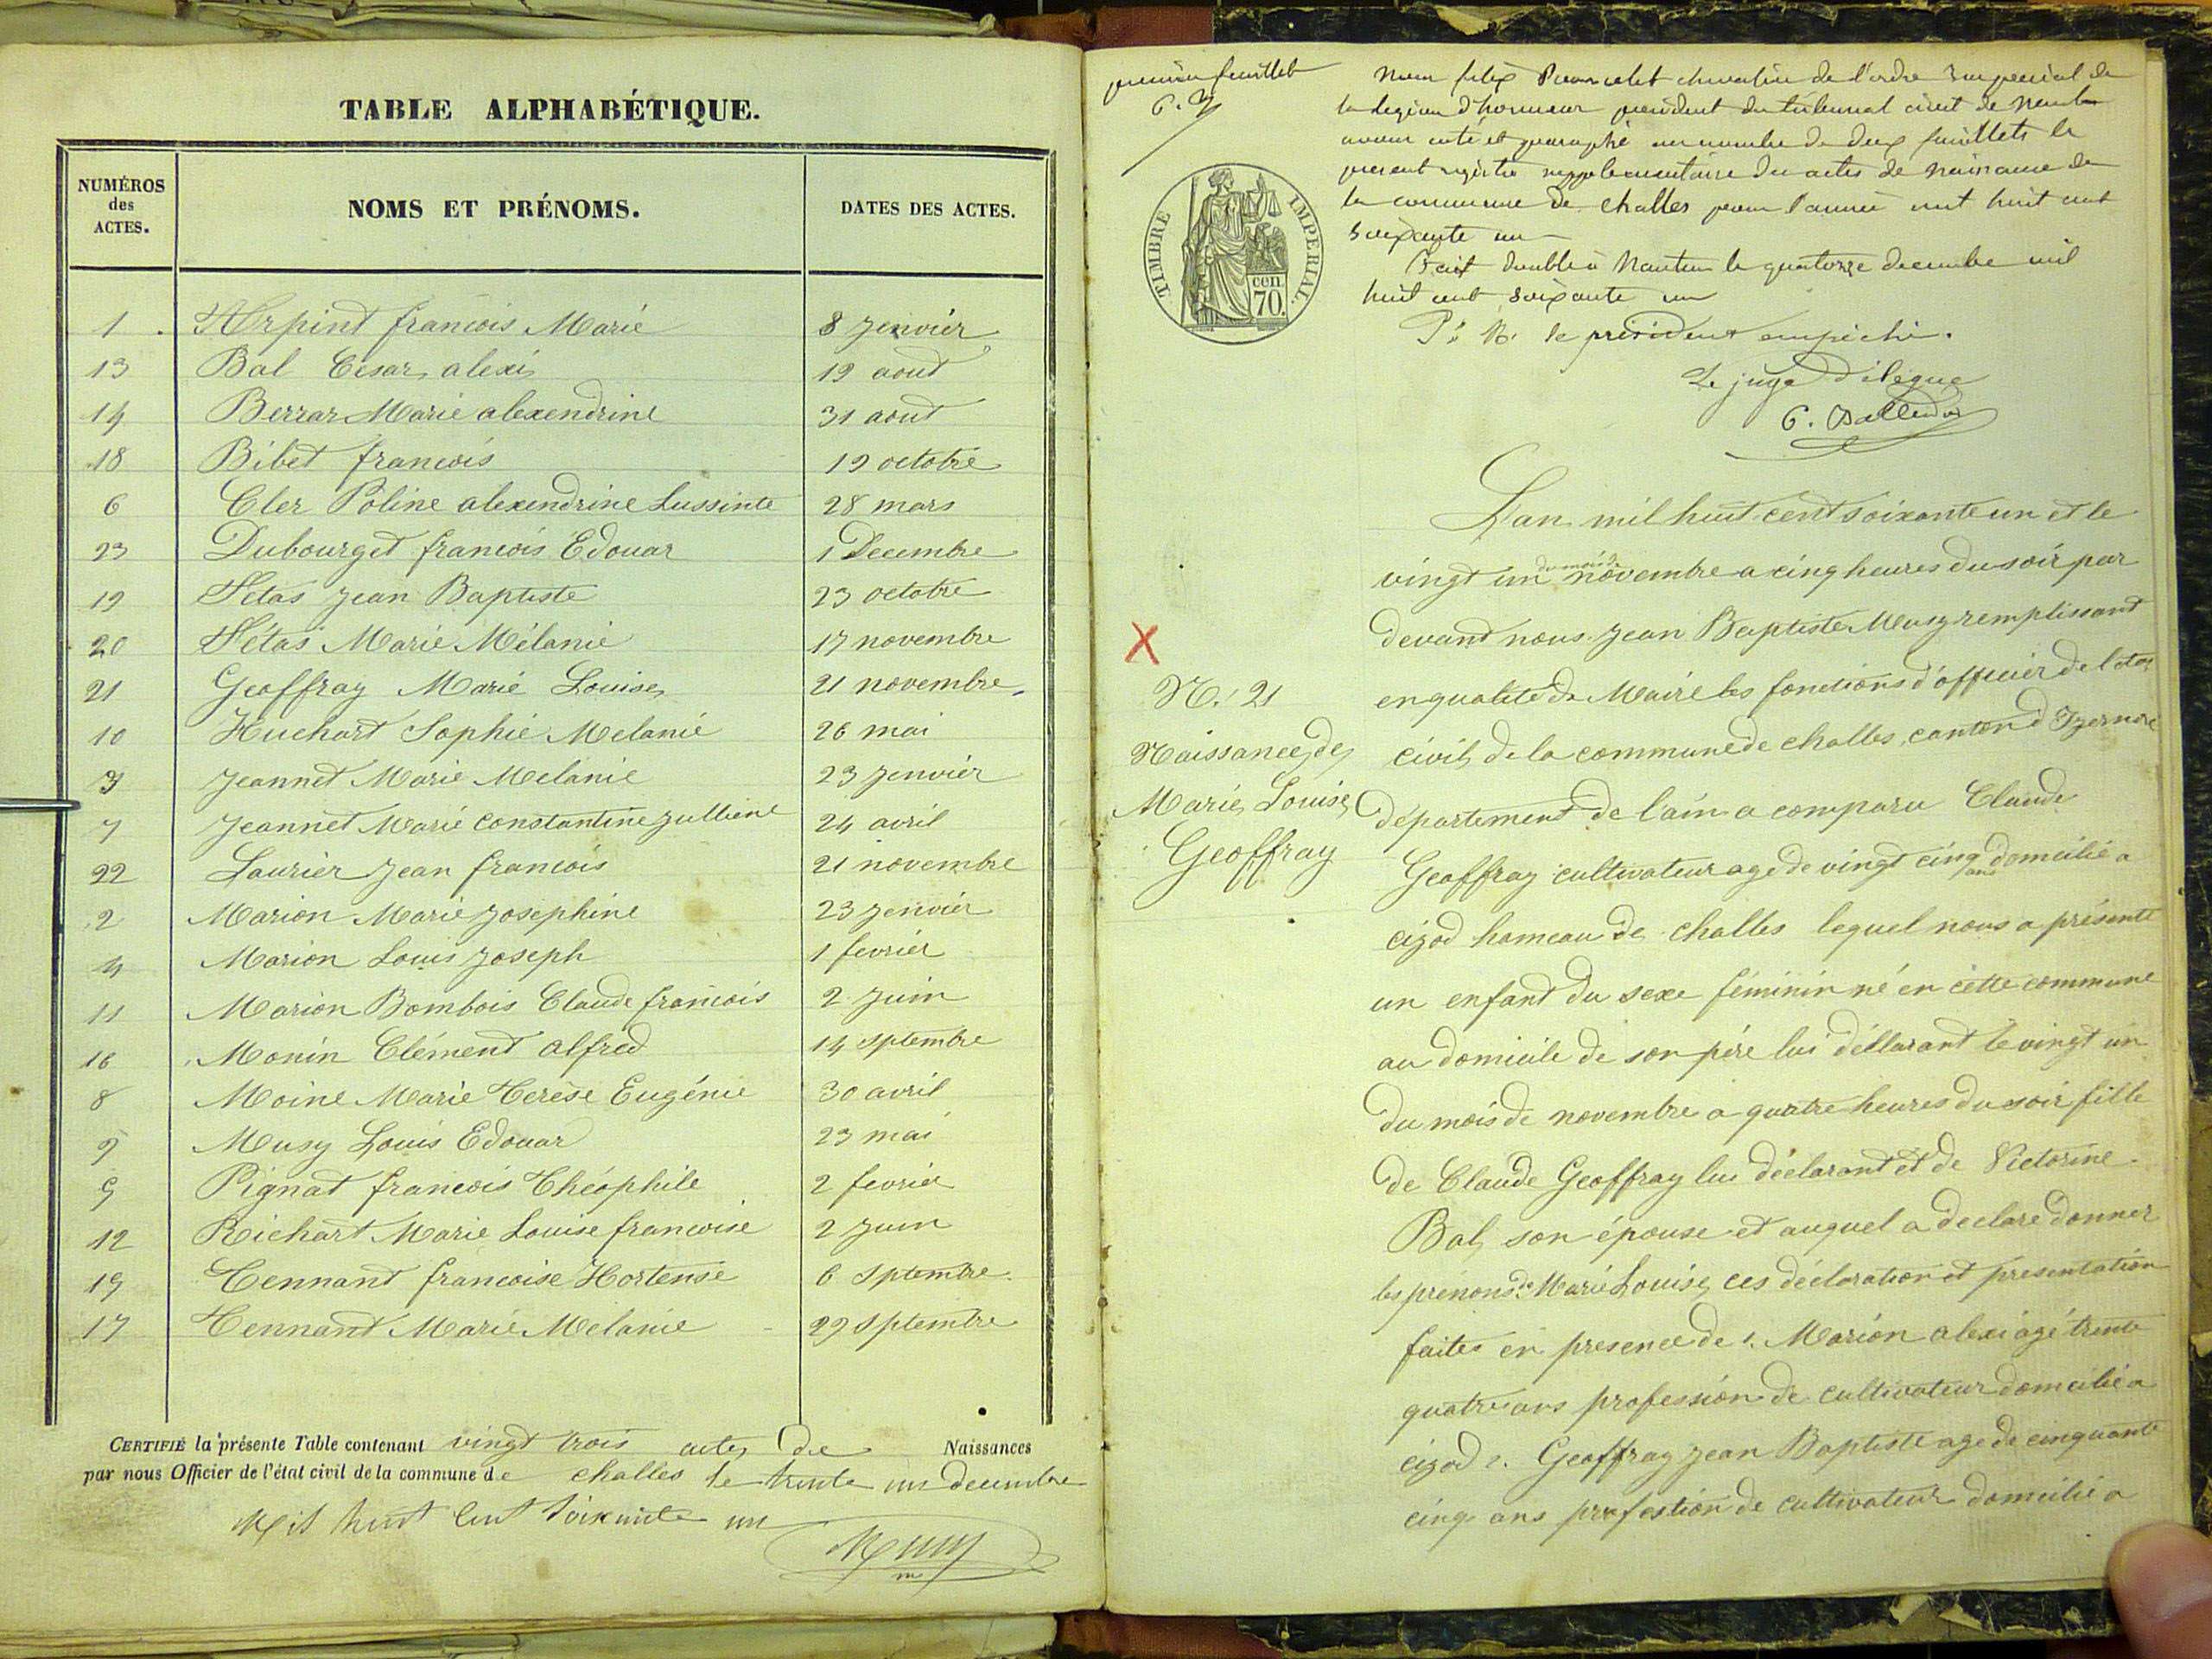 TABLE ALPHABÉTIQUE.
NUMÉROS des ACTES.
NOMS ET PRÉNOMS.
DATES DES ACTES.
1 Arpint francois Marie 8 jenvier
13 Bal Cesar alexi 19 aout
14 Berrar Marie alexendrine 31 aout
18 Bibet francois 19 octobre
6 Cler Poline alexendrine Lussinte 28 mars
23 Dubourget francois Edouar 1 Decembre
19 Fétas jean Baptiste 23 octobre
20 Fétas Marie Mélanie 17 novembre
21 Geoffray Marie Louise 21 novembre
10 Huchart Sophie Melanie 26 mai
3 jeannet Marie Melanie 23 jenvier
7 jeannet Marie constantine jullienne 24 avril
22 Laurier jean francois 21 novembre
2 Marion Marie josephine 23 jenvier
4 Marion Louis joseph 1 fevrier
11 Marion Bombois Claude francois 2 juin
16 Monin Clément alfred 14 sptembre
8 Moine Marie Terese Eugénie 30 avril
9 Musy Louis Edouar 23 mai
5 Pignat francois Théophile 2 fevrier
12 Richart Marie Louise francoise 2 juin
15 Tennant francoise Hortense 6 sptembre
17 Tennant Marie Mélanie 29 sptembre
CERTIFIÉ la présente Table contenant vingt trois actes de Naissances
par nous Officier de l'état civil de la commune de challes le trente un decembre
Mil huit cent soixante un
Musy
premier feuillet
TIMBRE IMPERIAL.
70 cen.
Nous felix chevalier de l'ordre imperial de
la legion d'honneur president du tribunal civil de Nantua
avons coté et paraphé au nombre de deux feuillets le
present registre supplementaire des actes de naissance de
la commune de challes pour l'année mil huit cent
soixante un
Fait double à Nantua le quatorze decembre mil
huit cent soixante un
Pr. le président empêché.
Le juge délégué
N. 21
Naissance de
Marie Louise
Geoffray
L'an mil huit cent soixante un et le
vingt un du mois de novembre a cinq heures du soir par
devant nous jean Baptiste Musy remplissant
en qualité de Maire les fonctions d'officier de l'etat
civil de la commune de challes, canton d'Izernore
département de l'ain a comparu Claude
Geoffray cultivateur age de vingt cinq ans domicilié a
cizod hameau de challes lequel nous a présenté
un enfant du sexe féminin né en cette commune
au domicile de son pére lui déllarant le vingt un
du mois de novembre a quatre heures du soir fille
de Claude Geoffray lui déclarant et de Victorine
Bal, son épouse et auquel a declaré donner
les prenons de Marie Louise, ces déclaration et presentation
faites en presence de 1. Marion alexi agé trente
quatre ans profession de cultivateur domicilié a
cizod 2. Geoffray jean Baptiste age de cinquante
cinq ans profestion de cultivateur domicilié a